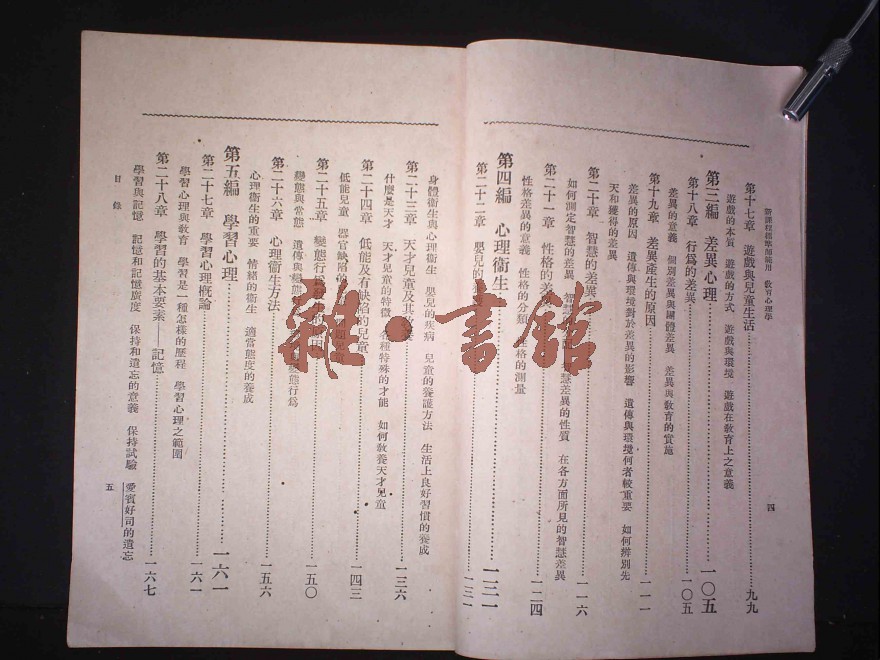 新課程標準師範用 教育心理學
四
第十七章 遊戲與兒童生活……九九
遊戲的本質 遊戲的方式 遊戲與環境 遊戲在敎育上之意義
第三編 差異心理……一〇五
第十八章 行爲的差異……一〇五
差異的意義 個別差異與團體差異 差異與敎育的實施
第十九章 差異產生的原因……一一一
差異的原因 遺傳與環境對於差異的影響 遺傳與環境何者較重要 如何辨別先
天和獲得的差異
第二十章 智慧的差異……一一六
如何測定智慧的差異 智慧差異的性質 在各方面所見的智慧差異
第二十一章 性格的差異……一二四
性格差異的意義 性格的分類 性格的測量
第四編 心理衞生……一三一
第二十二章 嬰兒的……一三一
身體衞生與心理衞生 嬰兒的疾病 兒童的養護方法 生活上良好習慣的養成
第二十三章 天才兒童及其敎養……一三六
什麼是天才 天才兒童的特徵 各種特殊的才能 如何敎養天才兒童
第二十四章 低能及有缺陷的兒童……一四三
低能兒童 器官缺陷的
第二十五章 變態行爲……一五〇
變態與常態 遺傳與變態 變態行爲
第二十六章 心理衞生方法……一五六
心理衞生的重要 情緒的衞生 適當態度的養成
第五編 學習心理……一六一
第二十七章 學習心理槪論……一六一
學習心理與敎育 學習是一種怎樣的歷程 學習心理之範圍
第二十八章 學習的基本要素——記憶……一六七
學習與記憶 記憶和記憶廣度 保持和遺忘的意義 保持試驗 愛賓好司的遺忘
目錄
五
雜·書館